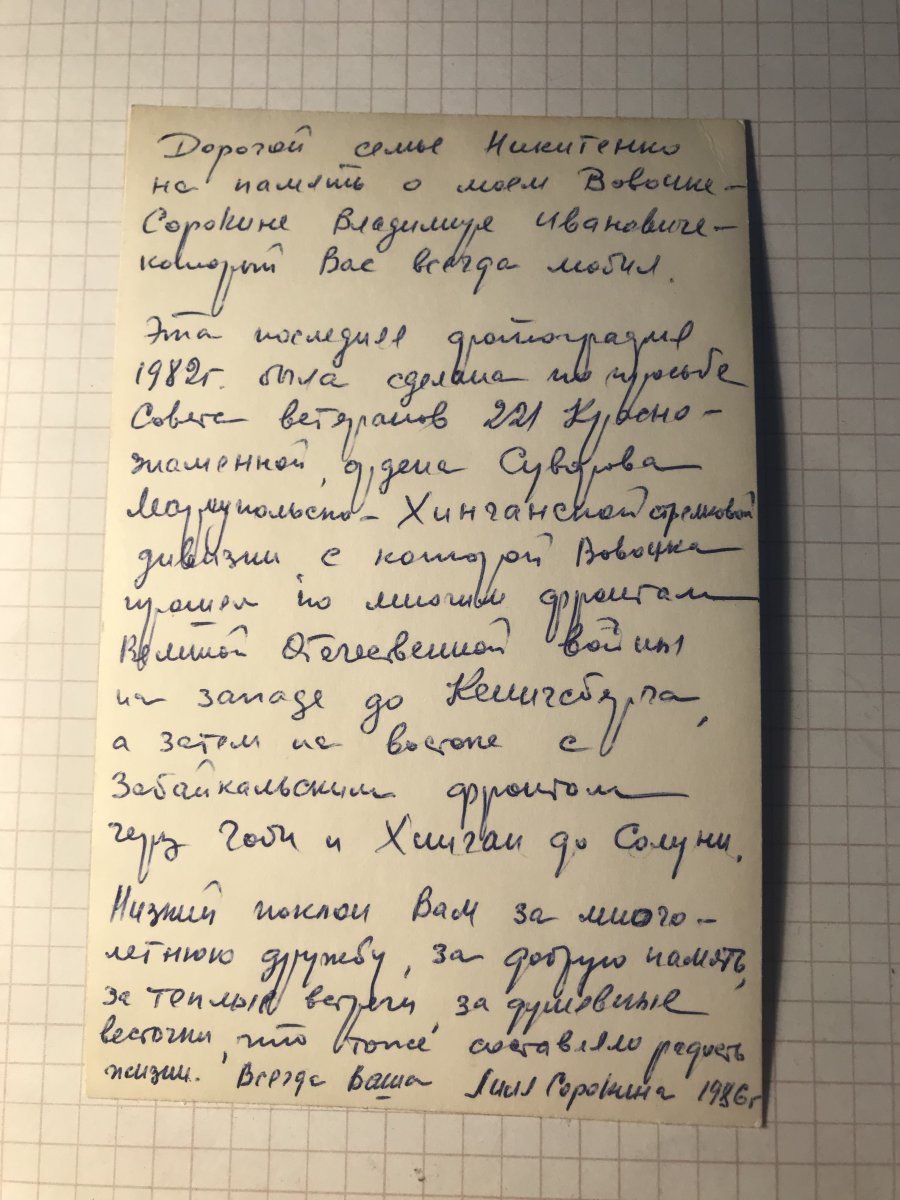 Дорогой семье Никитенко
на память о моем Вовочке –
Сорокине Владимире Ивановиче –
который Вас всегда любил.
Эта последняя фотография
1982г. была сделана по просьбе
Совета ветеранов 221 Красно-
знаменной, ордена Суворова
Мариупольско – Хинганской стрелковой
дивизии, с которой Вовочка
прошел по многим фронтам
Великой Отечественной войны
на западе до Кенигсберга,
а затем на востоке с
Забайкальским фронтом
через Гоби и Хинган до Солуни.
Низкий поклон Вам за много-
летнюю дружбу, за добрую память,
за теплые встречи, за душевные
весточки, что тоже составляло радость
жизни. Всегда Ваша Лиля Сорокина 1986г